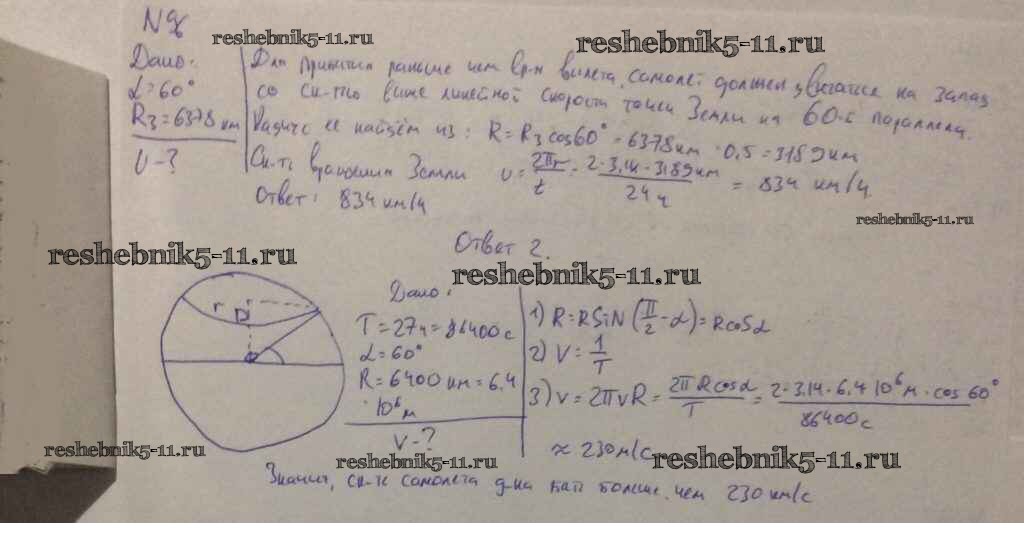 N 98
reshebnik5-11.ru
reshebnik5-11.ru
Дано:
L=60°
Rз=6378 км
v-?
Для прибытия раньше чем вр-я вылета, самолет должен двигатся на запад
со ск-тью выше линейной скорости точки Земли на 60-й параллели.
Радиус ее найдём из: R=Rз cos60°=6378 км · 0,5=3189 км
Ск-ть вращения Земли v=2πr/t=2·3,14·3189 км/24 ч = 834 км/ч
Ответ: 834 км/ч
reshebnik5-11.ru
reshebnik5-11.ru
Ответ 2.
reshebnik5-11.ru
r
Дано:
T=27ч=86400 с
L=60°
R=6400 км=6,4
·10⁶ м
v-?
1) R=RSiN(π/2-α)=Rcosα
2) V=1/T
3) v=2πvR=2πRcosα/T=2·3,14·6,4·10⁶ м·cos60°/86400 с
≈ 230 м/с
reshebnik5-11.ru
reshebnik5-11.ru
reshebnik5-11.ru
Значит, ск-ть самолета д-на быть больше, чем 230 км/с